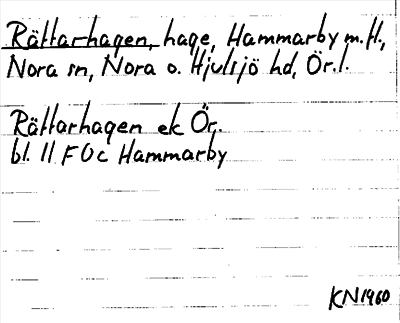 Rättarhagen, hage, Hammarby m.fl.,
Nora sn, Nora o. Hjulsjö hd, Ör.l.
Rättarhagen ek Ör.
bl. 11 F 0c Hammarby
KN1960